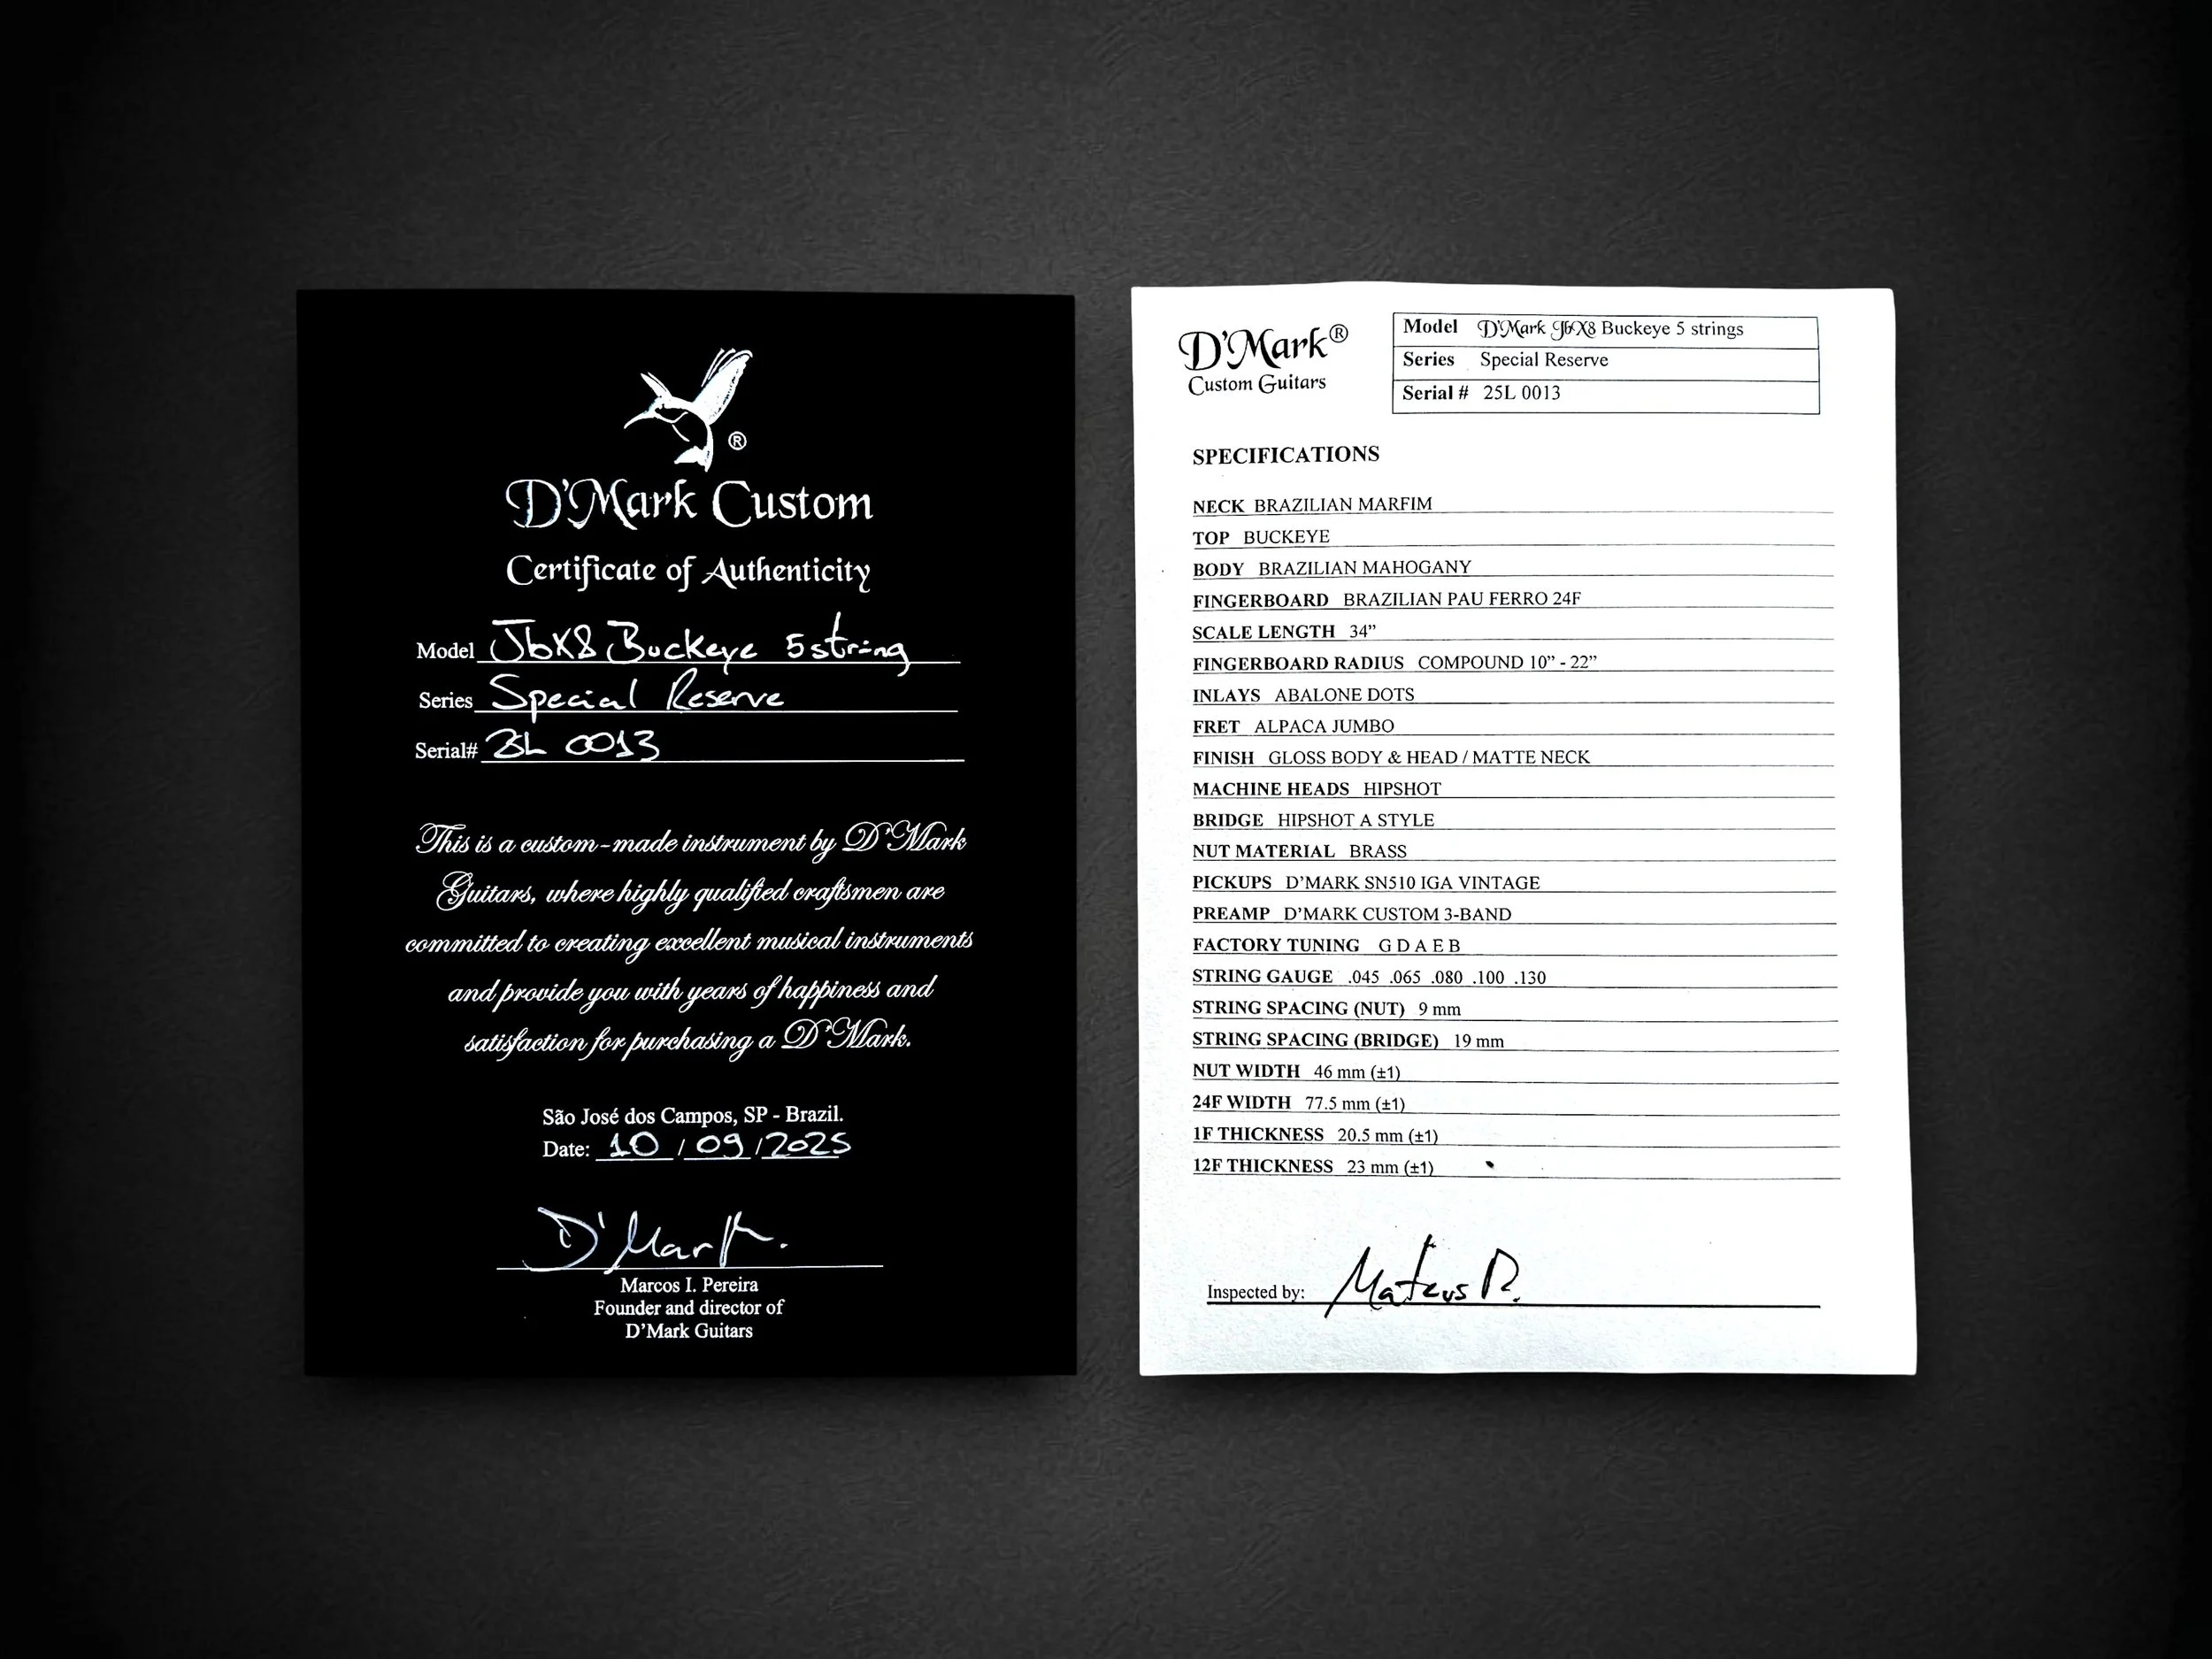 ®
D'Mark Custom
Certificate of Authenticity
Model JbX8 Buckeye 5 string
Series Special Reserve
Serial# 25L 0013
This is a custom-made instrument by D'Mark
Guitars, where highly qualified craftsmen are
committed to creating excellent musical instruments
and provide you with years of happiness and
satisfaction for purchasing a D'Mark.
São José dos Campos, SP - Brazil.
Date: 10 / 09 / 2025
D'Mark.
Marcos I. Pereira
Founder and director of
D’Mark Guitars
D'Mark®
Custom Guitars
Model D'Mark JbX8 Buckeye 5 strings
Series Special Reserve
Serial # 25L 0013
SPECIFICATIONS
NECK BRAZILIAN MARFIM
TOP BUCKEYE
BODY BRAZILIAN MAHOGANY
FINGERBOARD BRAZILIAN PAU FERRO 24F
SCALE LENGTH 34”
FINGERBOARD RADIUS COMPOUND 10” - 22”
INLAYS ABALONE DOTS
FRET ALPACA JUMBO
FINISH GLOSS BODY & HEAD / MATTE NECK
MACHINE HEADS HIPSHOT
BRIDGE HIPSHOT A STYLE
NUT MATERIAL BRASS
PICKUPS D’MARK SN510 IGA VINTAGE
PREAMP D’MARK CUSTOM 3-BAND
FACTORY TUNING G D A E B
STRING GAUGE .045 .065 .080 .100 .130
STRING SPACING (NUT) 9 mm
STRING SPACING (BRIDGE) 19 mm
NUT WIDTH 46 mm (±1)
24F WIDTH 77.5 mm (±1)
1F THICKNESS 20.5 mm (±1)
12F THICKNESS 23 mm (±1)
Inspected by: Mateus P.